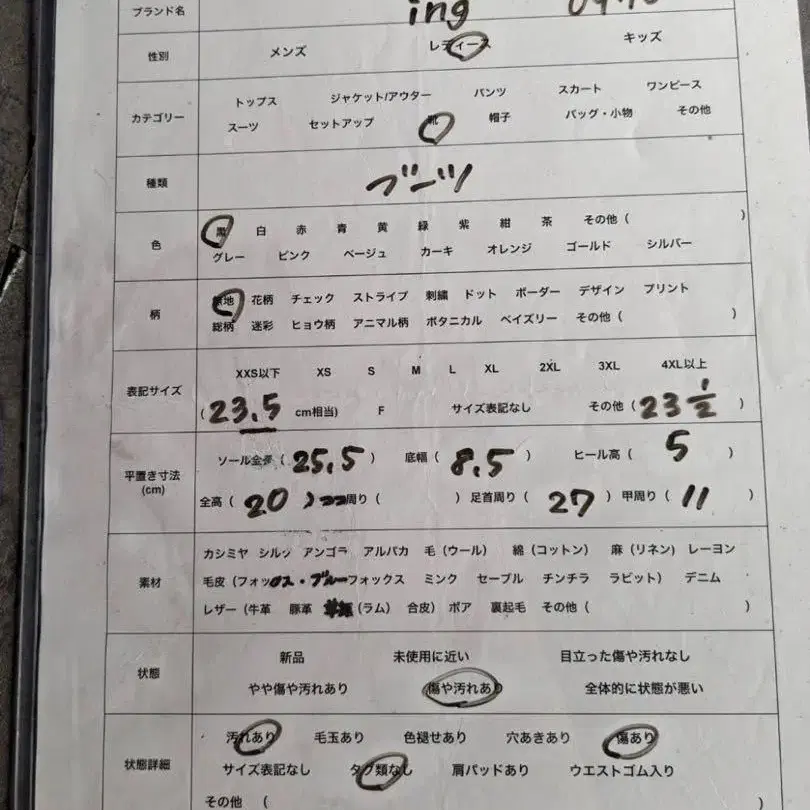 ブランド名 ing
性別 メンズ レディース キッズ
カテゴリー トップス ジャケット/アウター パンツ スカート ワンピース
スーツ セットアップ 靴 帽子 バッグ・小物 その他
種類 ブーツ
色 黒 白 赤 青 黄 緑 紫 紺 茶 その他 ( )
グレー ピンク ベージュ カーキ オレンジ ゴールド シルバー
柄 無地 花柄 チェック ストライプ 刺繍 ドット ボーダー デザイン プリント
総柄 迷彩 ヒョウ柄 アニマル柄 ボタニカル ペイズリー その他 ( )
表記サイズ XXS以下 XS S M L XL 2XL 3XL 4XL以上
( 23.5 cm相当) F サイズ表記なし その他 ( 23 1/2 )
平置き寸法 (cm) ソール全長 ( 25.5 ) 底幅 ( 8.5 ) ヒール高 ( 5 )
全高 ( 20 ) 周り ( ) 足首周り ( 27 ) 甲周り ( 11 )
素材 カシミヤ シルク アンゴラ アルパカ 毛 (ウール) 綿 (コットン) 麻 (リネン) レーヨン
毛皮 (フォックス・ブルーフォックス ミンク セーブル チンチラ ラビット) デニム
レザー (牛革 豚革 (ラム) 合皮) ボア 裏起毛 その他 ( )
状態 新品 未使用に近い 目立った傷や汚れなし
やや傷や汚れあり 傷や汚れあり 全体的に状態が悪い
状態詳細 汚れあり 毛玉あり 色褪せあり 穴あきあり 傷あり
サイズ表記なし タグ類なし 肩パッドあり ウエストゴム入り
その他 ( )